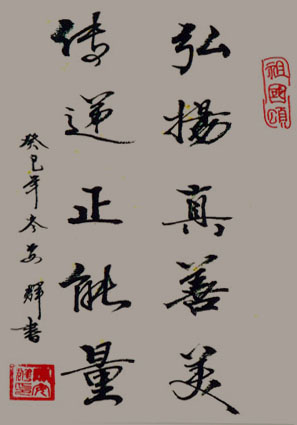 祖國頌
弘揚真善美
传递正能量
癸巳年冬安輝书